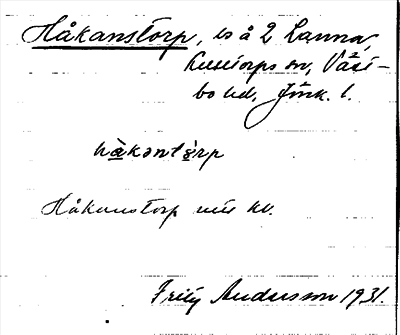 Håkanstorp, ls å 2 Lanna,
Kulltorps sn, Väst-
bo hd, Jönk. l.
hàkəntòrp
Håkanstorp
Fritz Andersson 1931.